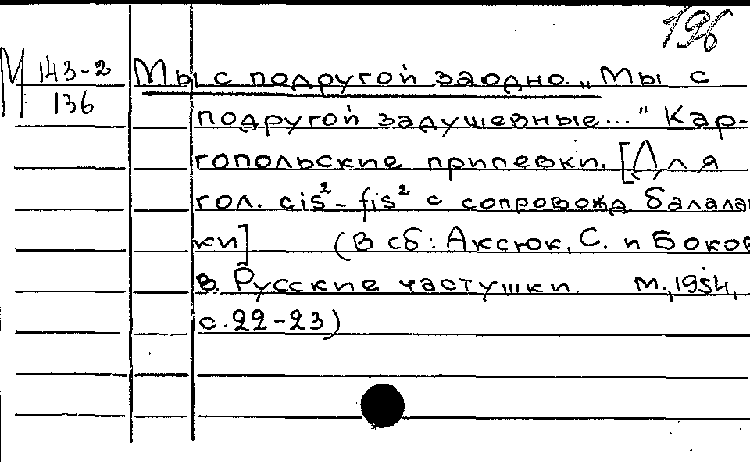 196
М 143-2
136
Мы с подругой заодно. „Мы с
подругой задушевные..." Кар-
гопольские припевки. [Для
гол. cis²-fis² с сопровожд балалай
ки] (В сб: Аксюк, С. и Боков
В. Русские частушки. М., 1954,
с.22-23)